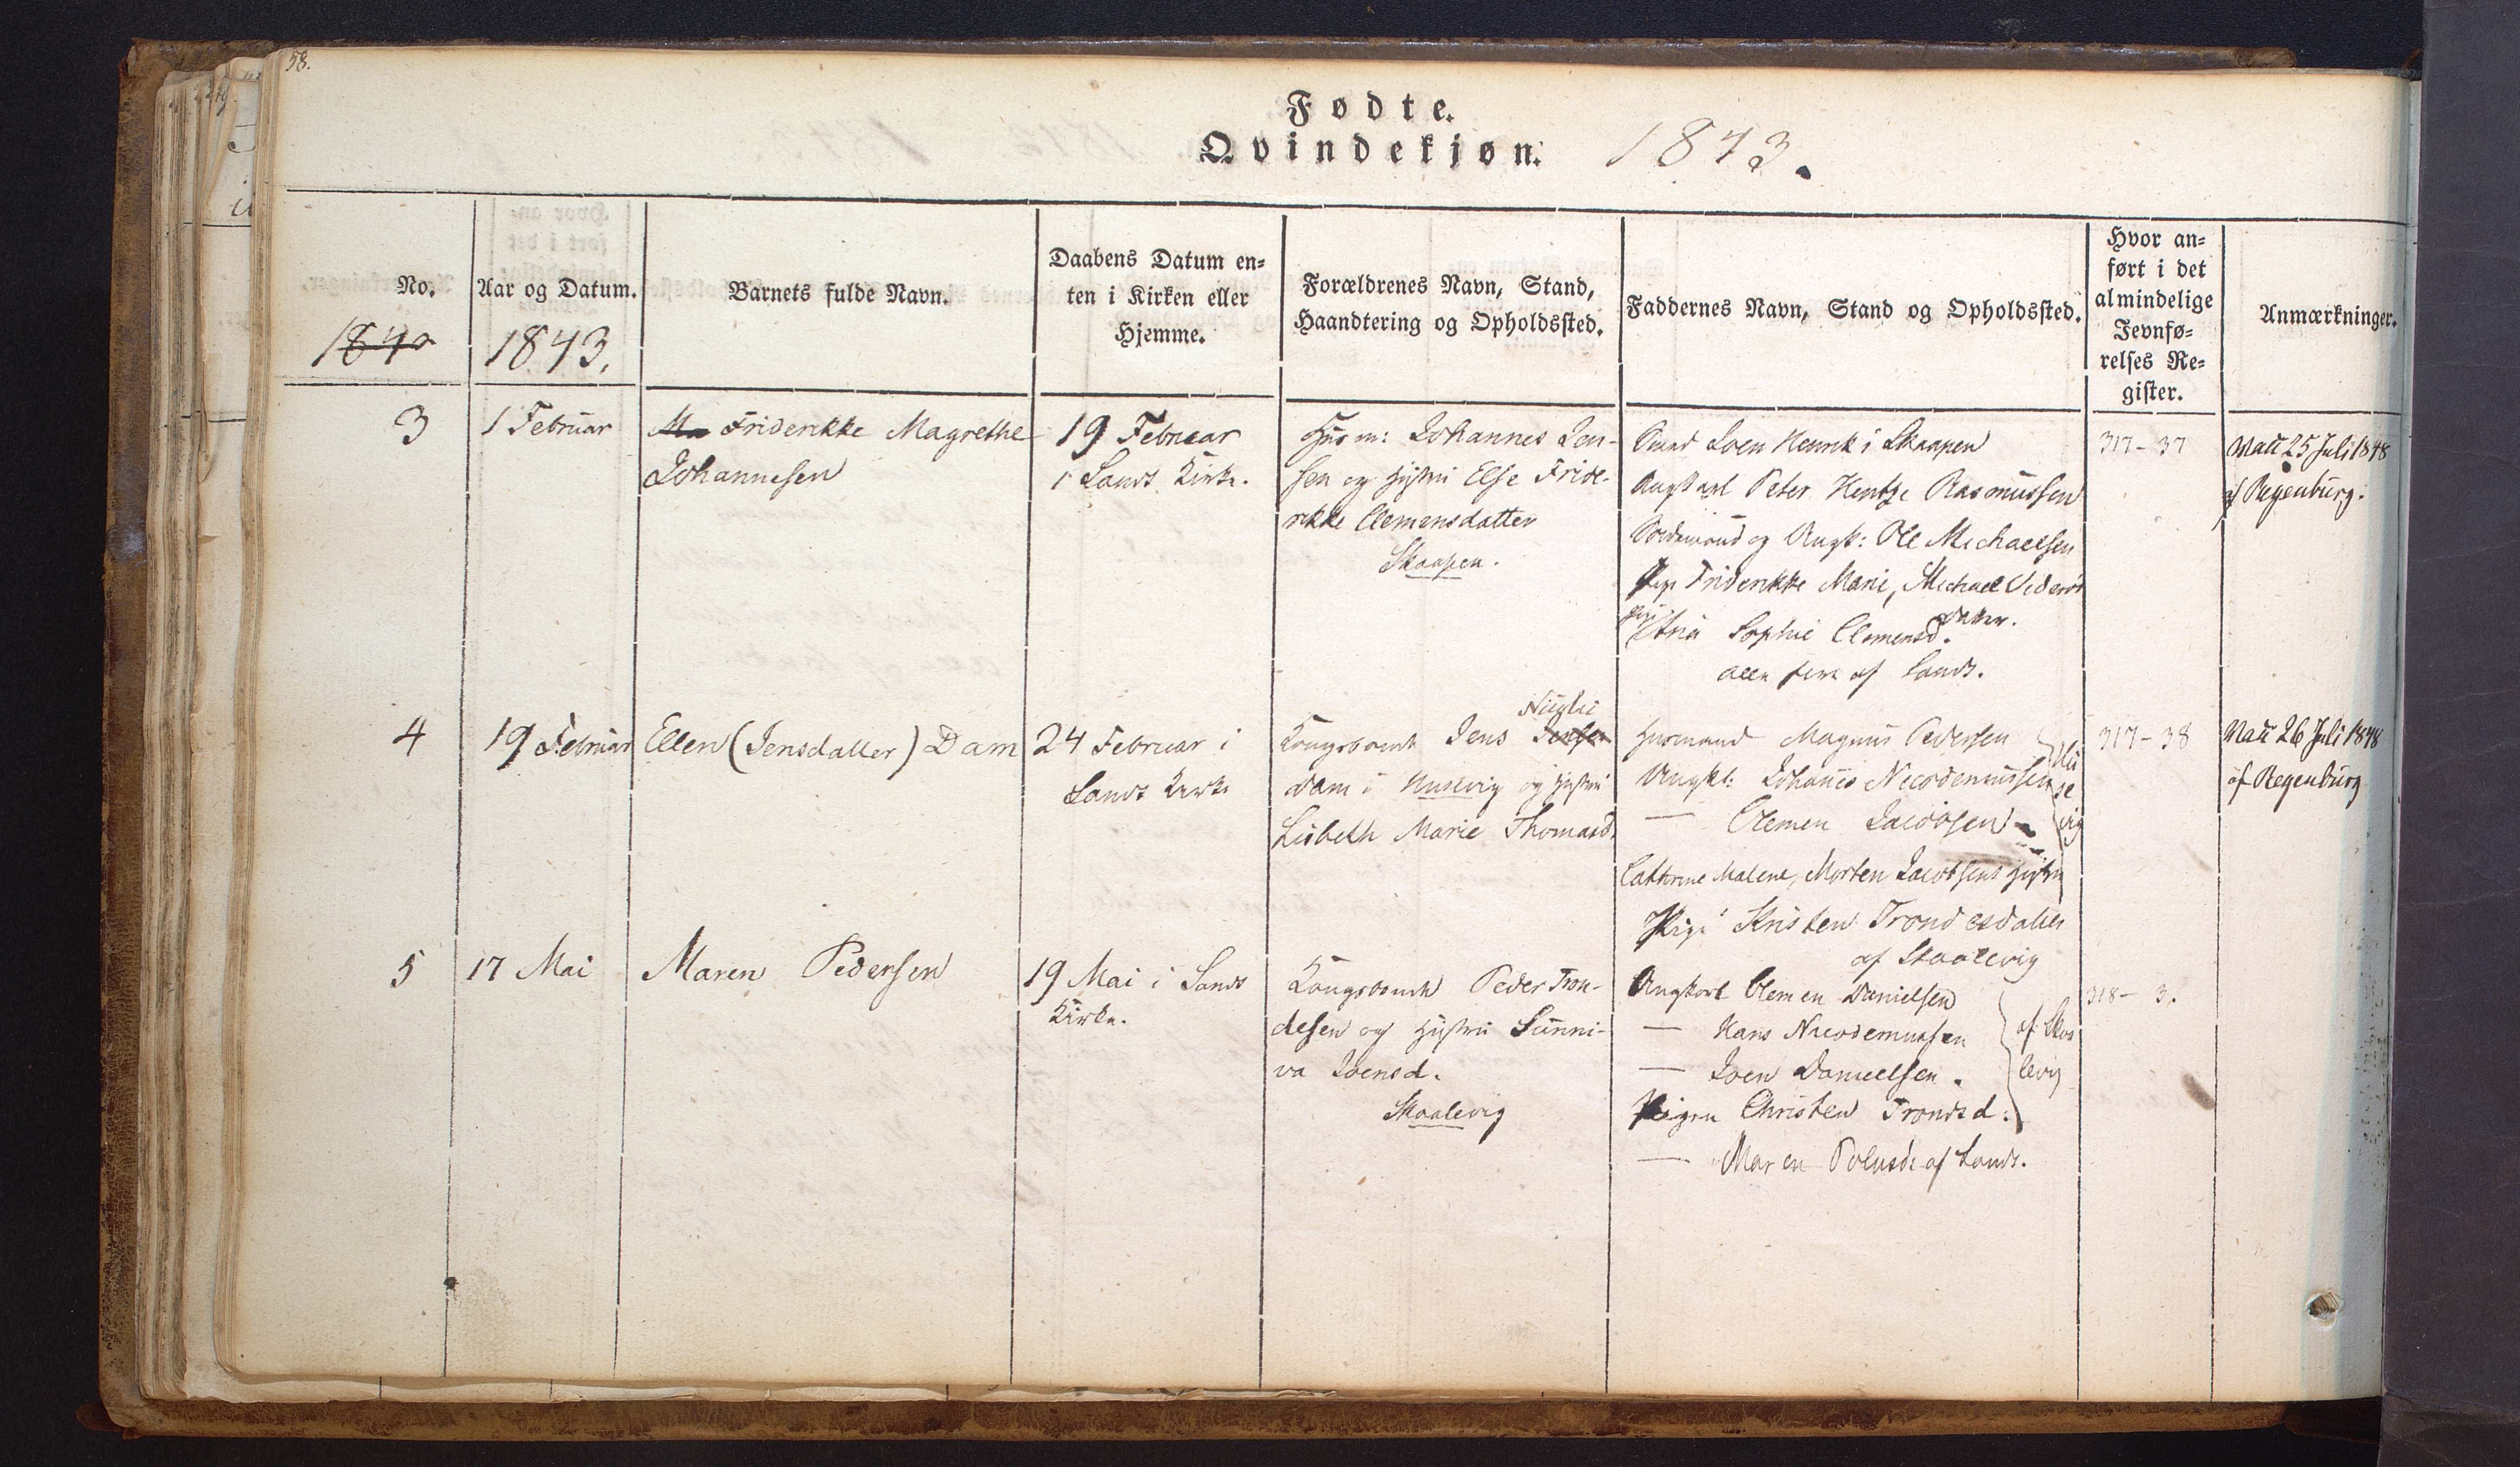 58.
Fødte.
Qvindekjøn. 1843.
No.
1840
Aar og Datum.
1843.
Barnets fulde Navn.
Daabens Datum en-
ten i Kirken eller
Hjemme.
Forældrenes Navn, Stand,
Haandtering og Opholdssted.
Faddernes Navn, Stand og Opholdssted.
Hvor an-
ført i det
almindelige
Jevnfø-
relses Re-
gister.
Anmærkninger.
3
1 Februar
Ma Friderikke Magrethe
Johannesen
19 Februar
i Sands Kirke.
Husm: Johannes Jen-
sen og Hustru Else Fride-
rikke Clemensdatter
Skaapen.
Joen Henrik i Skaapen
Ungkarl Peter Hentze Rasmussen
og Ungk: Ole Michaelsen
Pige Friderikke Marie, Michael
datter.
Sophie Clemensd.
alle fem af Sands.
317-37
Vacc 25 Juli 1848
af Regenburg.
4
19 Februar
Ellen (Jensdatter) Dam
24 Februar i
Sands Kirke
Kongsbonde Jens Jensen
Dam i Husevig og Hustru
Lisbeth Marie Thomasd.
Husmand Magnus Pedersen
Ungkl: Johannes Nicodemussen
— Clemen Jacobsen
Hu
se
vig
Cathrine Malene, Morten Jacobsens Hustru
Pige Kristen Trondesdatter
af Skaalevig
317-38
Vacc 26 Juli 1848
af Regenburg
5
17 Mai
Maren Pedersen
19 Mai i Sands
Kirke.
Kongsbonde Peder Tron-
desen og Hustru Sunni-
va Joensd.
Skaalevig
Ungkarl Clemen Danielsen
— Hans Nicodemussen
— Joen Danielsen.
Pigen Christen Trondsd:
af Skaa
levig
— Maren Poulsd: af Sands.
318- 3.